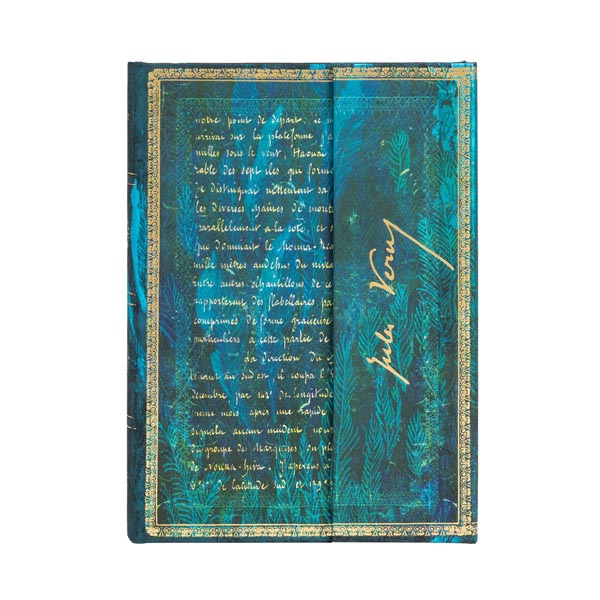 notre point de départ. Le
arrivai sur la plateforme j'a
milles sous le vent, Haouaï
rable des sept iles que forme
Je distinguai nettement sa
les diverses chaînes de mont
parallèlement à la côte, et s
que dominait le Mouna-Rea
mille mètres audessus du nivea
Entre autres échantillons de ce
rapportèrent des flabellaires pa
comprimés de forme gracieuse
particuliers à cette partie de
La direction du
tenant au sud-est il coupa l'E
décembre par 142° de longitude
même mois, après une rapide
signala aucun incident nous
de groupe des Marquises
de Nouka-hiva. J'aperçus à
de latitude sud et 139°
Jules Verne